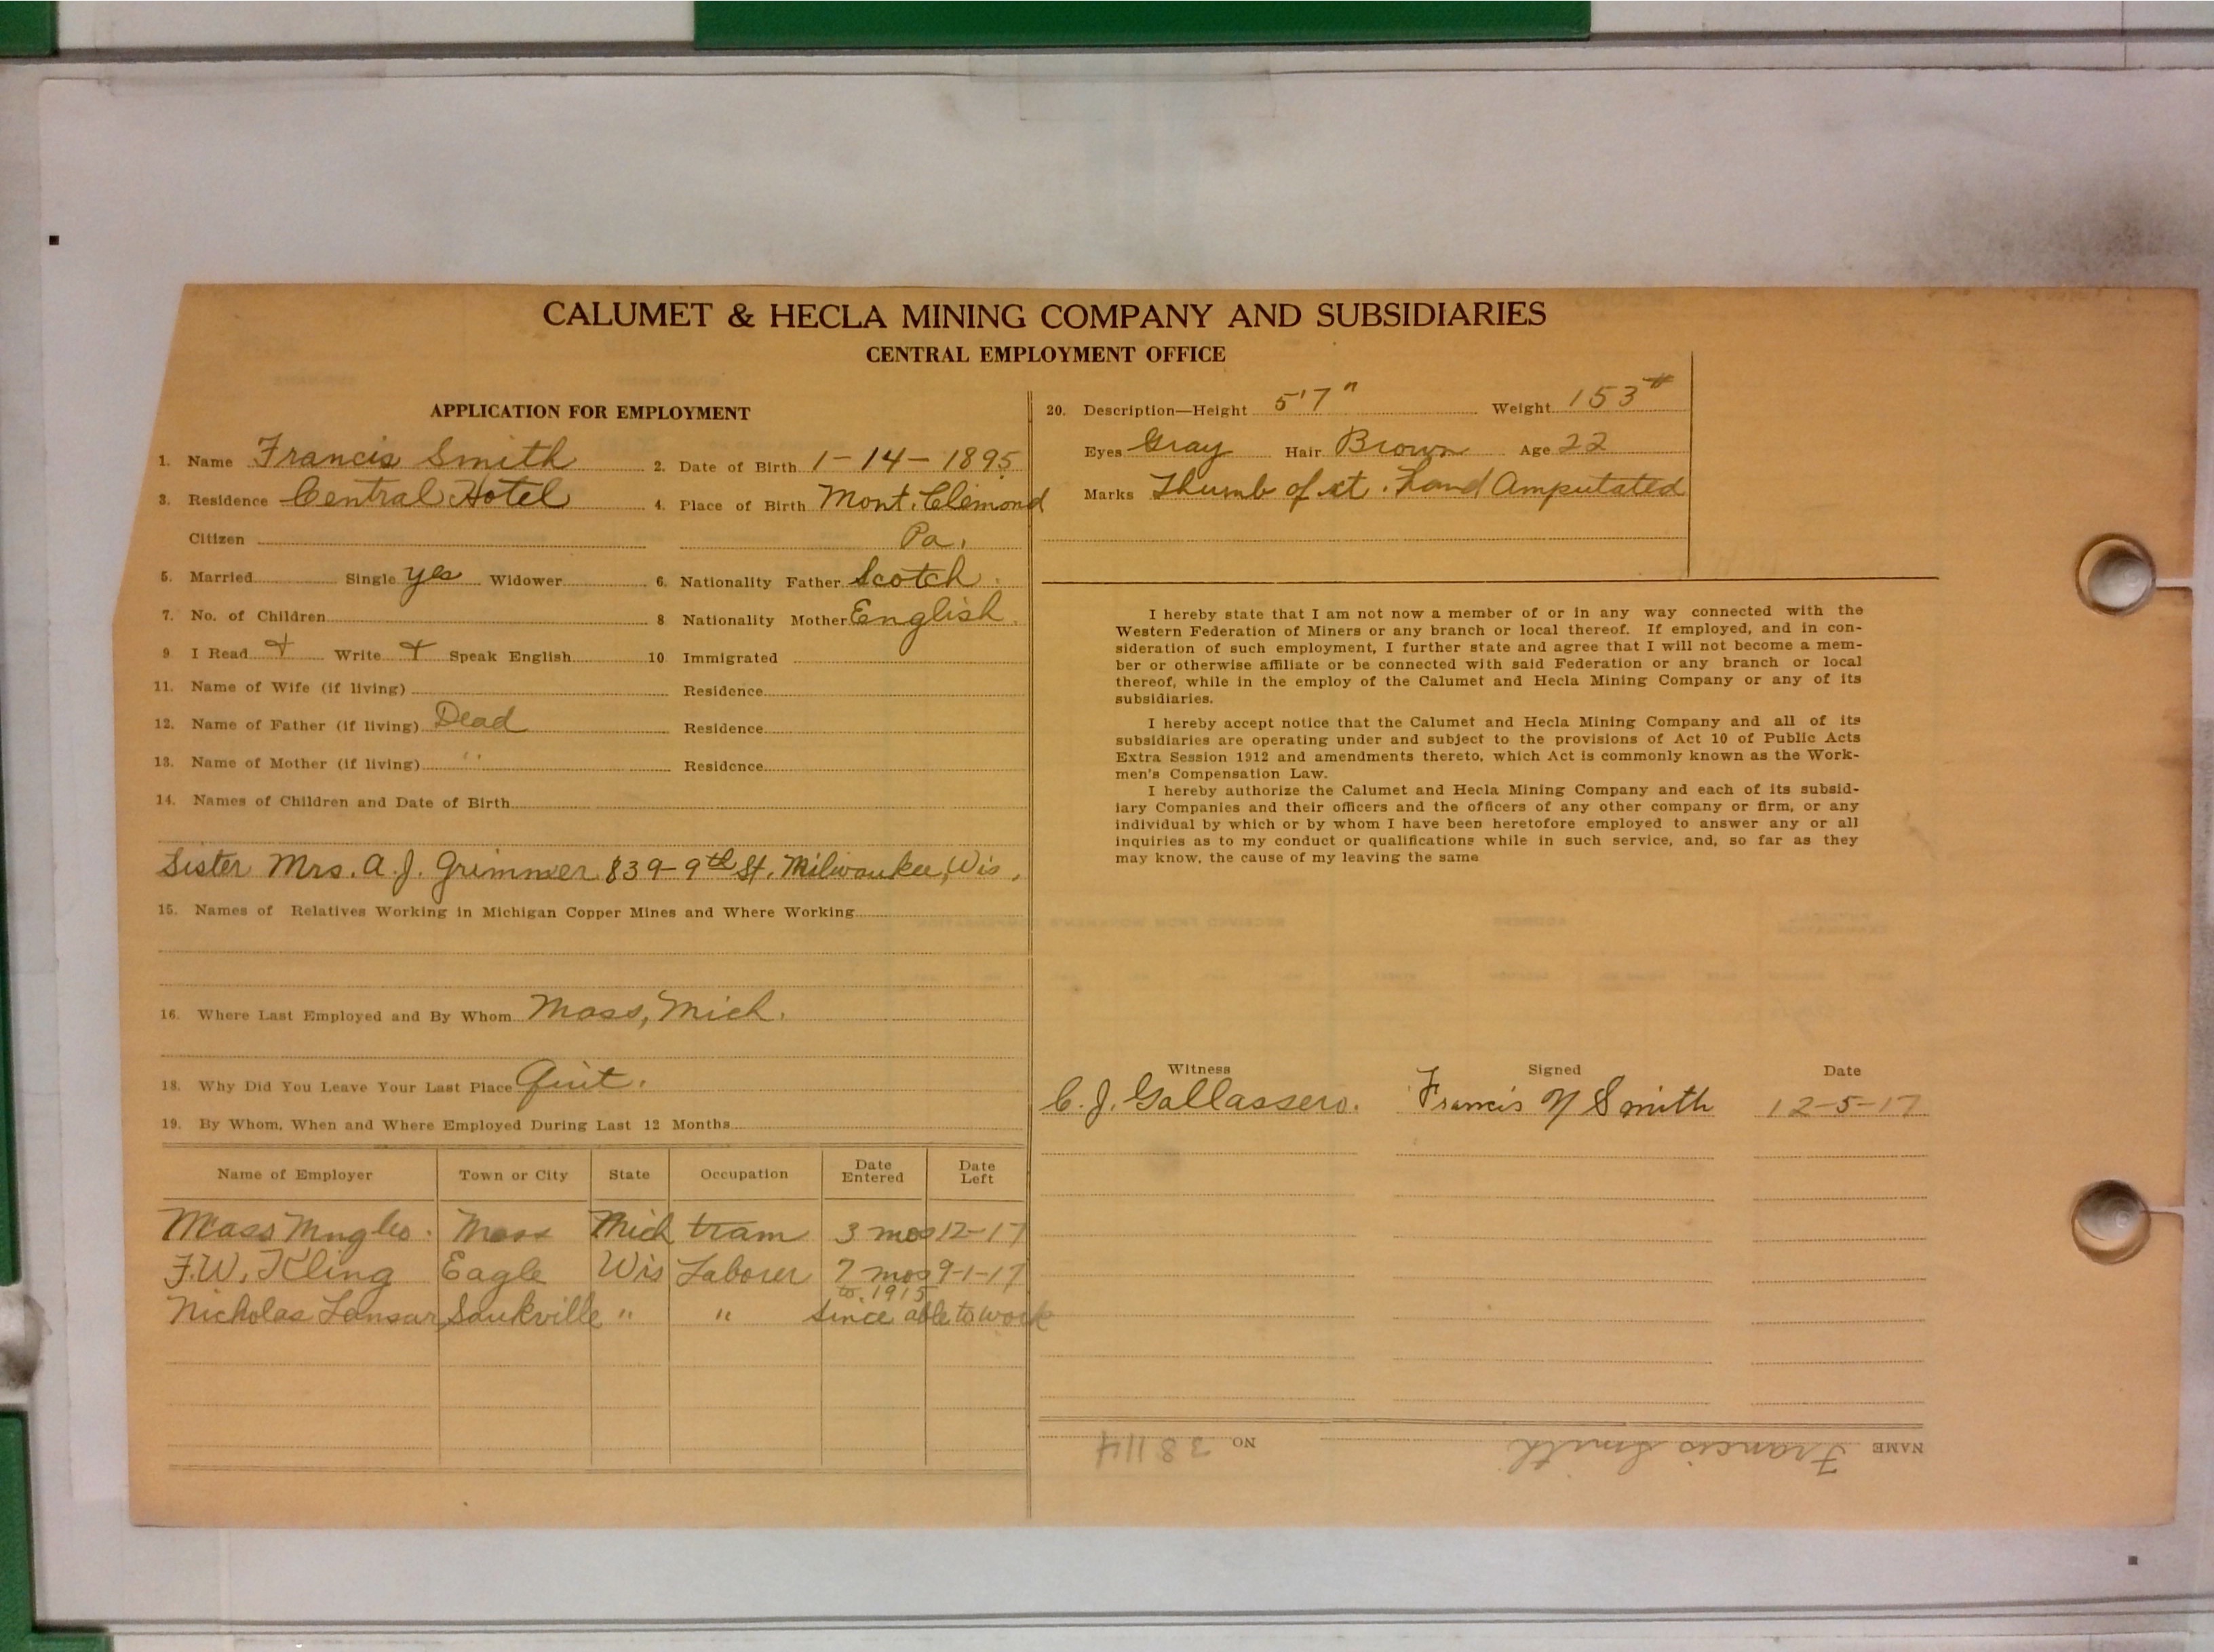 CALUMET & HECLA MINING COMPANY AND SUBSIDIARIES
CENTRAL EMPLOYMENT OFFICE
APPLICATION FOR EMPLOYMENT
1. Name Francis Smith 2. Date of Birth 1-14-1895
3. Residence Central Hotel 4. Place of Birth Mont. Clemond
Citizen Pa.
5. Married Single yes Widower 6. Nationality Father Scotch.
7. No. of Children 8 Nationality Mother English.
9 I Read + Write + Speak English 10 Immigrated
11. Name of Wife (if living) Residence
12. Name of Father (if living) Dead Residence
13. Name of Mother (if living) " Residence
14. Names of Children and Date of Birth
Sister Mrs. A. J. Grimmer 839-9th St. Milwaukee, Wis.
15. Names of Relatives Working in Michigan Copper Mines and Where Working
16. Where Last Employed and By Whom Mass, Mich.
18. Why Did You Leave Your Last Place Quit.
19. By Whom, When and Where Employed During Last 12 Months
Name of Employer Town or City State Occupation Date Entered Date Left
Mass Mng Co. Mass Mich tram 3 mos 12-17
F.W. Kling Eagle Wis Laborer 7 mos 9-1-17
to. 1915
Nicholas Saukville " " since able to work
20. Description—Height 5'7" Weight 153#
Eyes Gray Hair Brown Age 22
Marks Thumb of rt. hand Amputated
I hereby state that I am not now a member of or in any way connected with the
Western Federation of Miners or any branch or local thereof. If employed, and in con-
sideration of such employment, I further state and agree that I will not become a mem-
ber or otherwise affiliate or be connected with said Federation or any branch or local
thereof, while in the employ of the Calumet and Hecla Mining Company or any of its
subsidiaries.
I hereby accept notice that the Calumet and Hecla Mining Company and all of its
subsidiaries are operating under and subject to the provisions of Act 10 of Public Acts
Extra Session 1912 and amendments thereto, which Act is commonly known as the Work-
men's Compensation Law.
I hereby authorize the Calumet and Hecla Mining Company and each of its subsid-
iary Companies and their officers and the officers of any other company or firm, or any
individual by which or by whom I have been heretofore employed to answer any or all
inquiries as to my conduct or qualifications while in such service, and, so far as they
may know, the cause of my leaving the same
Witness Signed Date
C. J. Gallassero. Francis N Smith 12-5-17
NAME Francis Smith NO. 38114